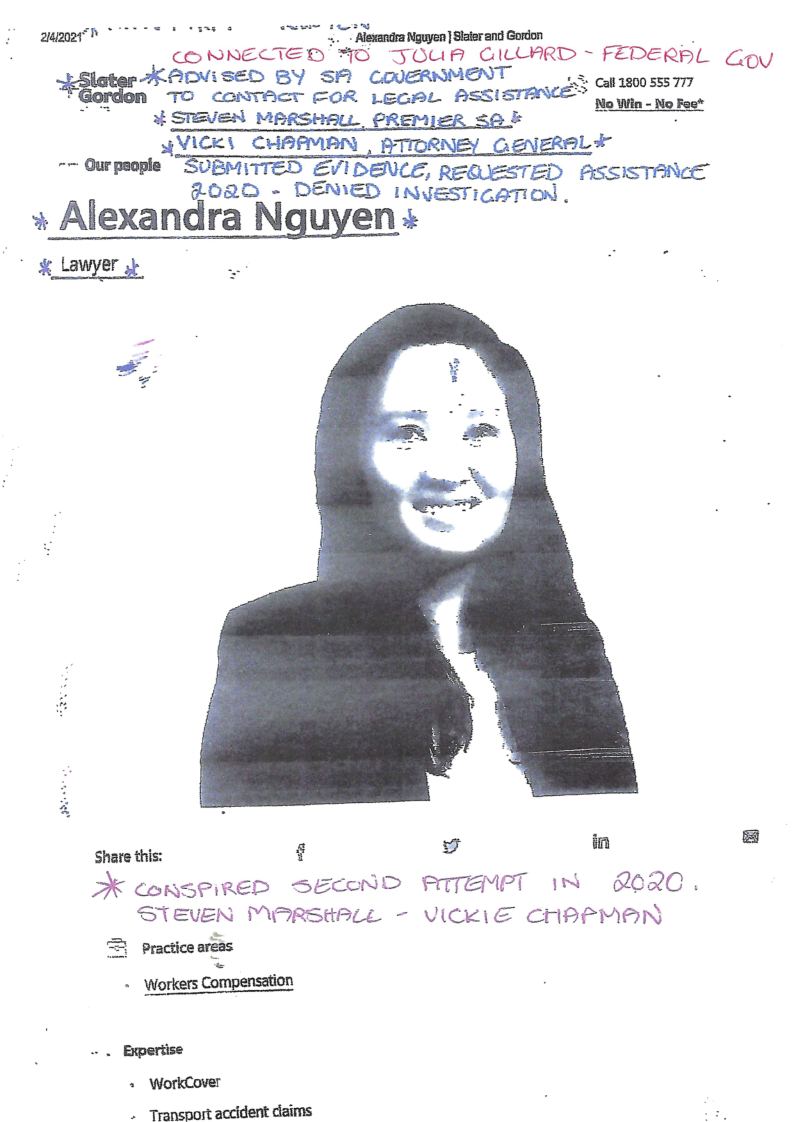 2/4/2021
Alexandra Nguyen | Slater and Gordon
CONNECTED TO JULIA GILLARD - FEDERAL GOV
Slater *ADVISED BY SA GOVERNMENT
Gordon TO CONTACT FOR LEGAL ASSISTANCE
Call 1800 555 777
No Win - No Fee*
* STEVEN MARSHALL, PREMIER SA *
* VICKI CHAPMAN, ATTORNEY GENERAL *
Our people
SUBMITTED EVIDENCE, REQUESTED ASSISTANCE
2020 - DENIED INVESTIGATION.
* Alexandra Nguyen *
* Lawyer *
Share this:
in
* CONSPIRED SECOND ATTEMPT IN 2020.
STEVEN MARSHALL - VICKIE CHAPMAN
Practice areas
Workers Compensation
Expertise
WorkCover
Transport accident claims